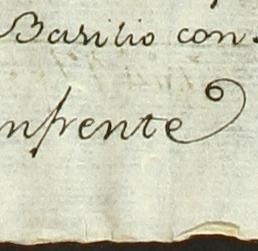 Basilio con
nfrente